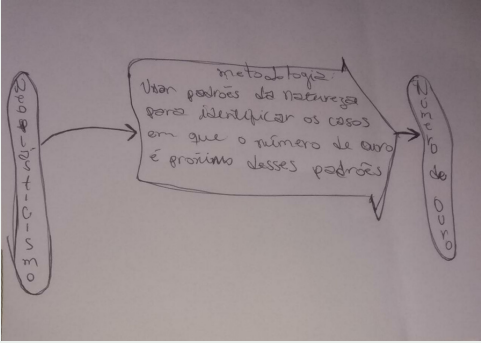 Neoplásticismo
metodologia:
Usar padrões da natureza
para identificar os casos
em que o número de ouro
é proximo desses padrões
Número de Ouro